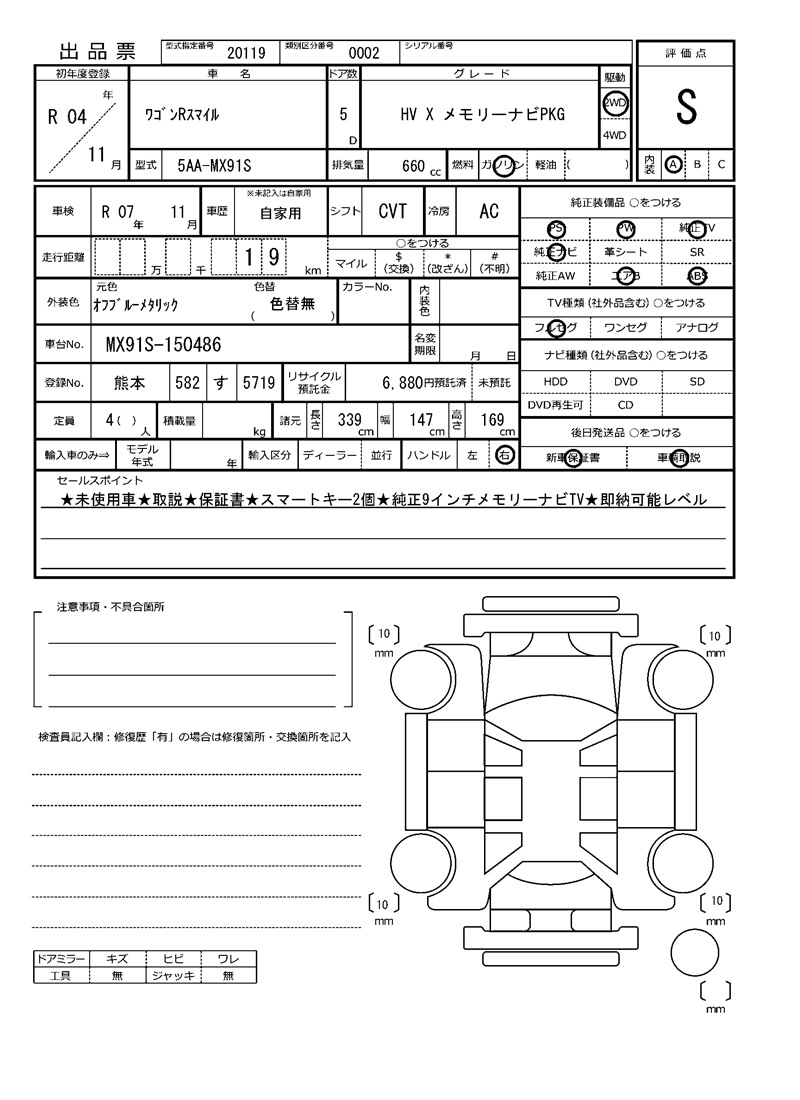 出品票 型式指定番号 20119 類別区分番号 0002 シリアル番号
初年度登録 車 名 ドア数 グレード 駆動 評価点
R 04 年 11 月 ワゴンRスマイル 5 D HV X メモリーナビPKG 2WD 4WD S
型式 5AA-MX91S 排気量 660 cc 燃料 ガソリン 軽油 ( ) 内装 A B C
車検 R 07 年 11 月 車歴 ※未記入は自家用 自家用 シフト CVT 冷房 AC
純正装備品 ○をつける
PS PW 純正TV
純正ナビ 革シート SR
純正AW エアB ABS
走行距離 万 千 1 9 km ○をつける
マイル $ (交換) * (改ざん) # (不明)
外装色 元色 オフブルーメタリック 色替 色替無 ( ) カラーNo. 内装色
TV種類 (社外品含む) ○をつける
フルセグ ワンセグ アナログ
車台No. MX91S-150486 名変期限 月 日
ナビ種類 (社外品含む) ○をつける
HDD DVD SD
DVD再生可 CD
登録No. 熊本 582 す 5719 リサイクル預託金 6,880円預託済 未預託
定員 4 ( ) 人 積載量 kg 諸元 長さ 339 cm 幅 147 cm 高さ 169 cm
後日発送品 ○をつける
新車保証書 車輌取説
輸入車のみ⇒ モデル年式 年 輸入区分 ディーラー 並行 ハンドル 左 右
セールスポイント
★未使用車★取説★保証書★スマートキー2個★純正9インチメモリーナビTV★即納可能レベル
注意事項・不具合箇所
[10] mm
[10] mm
検査員記入欄：修復歴「有」の場合は修復箇所・交換箇所を記入
[10] mm
[10] mm
ドアミラー キズ ヒビ ワレ
工具 無 ジャッキ 無
[ ] mm